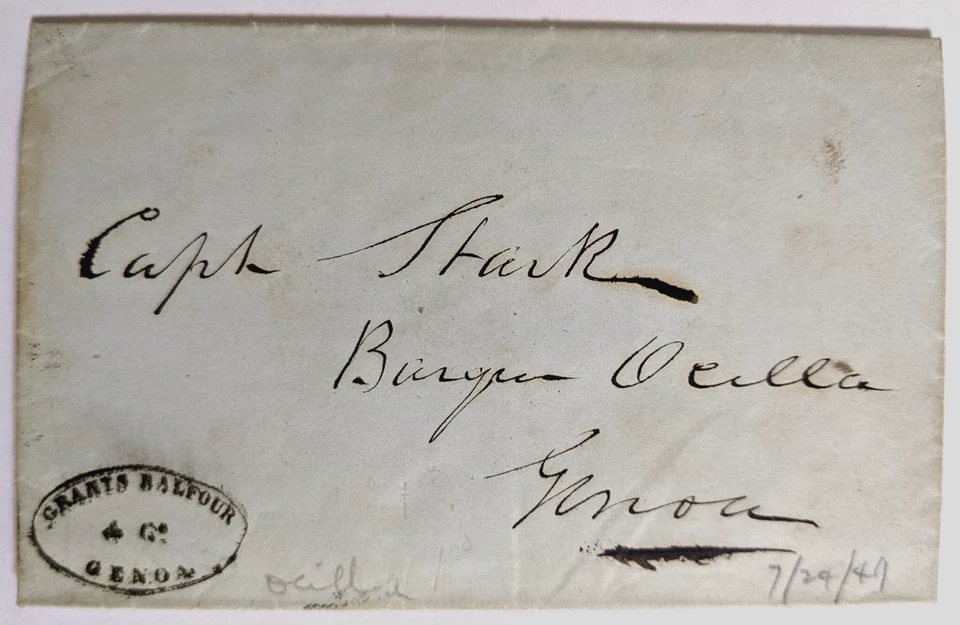 Capt Stark
Barque Ocilla
Genoa
GRANTS BALFOUR
& Co
GENOA
ocilla
7/29/47